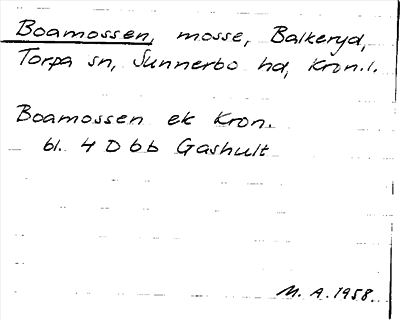 Boamossen, mosse, Balkeryd,
Torpa sn, Sunnerbo hd, Kron. l.
Boamossen ek Kron.
bl. 4 D b b Gashult
M. A. 1958.